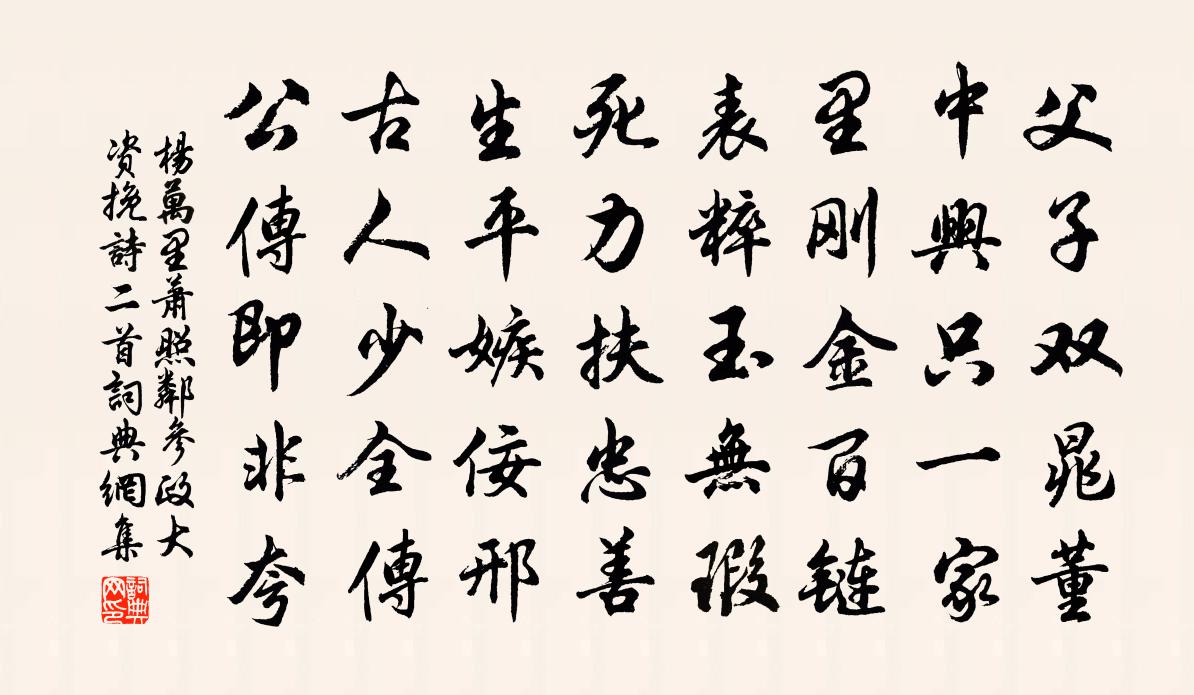 父子双晁董
中興只一家
里刚金百鏈
表粹玉無瑕
死力扶忠善
生平嫉佞邢
古人少全傳
公傳即非夸
楊萬里蕭照鄰參政大
资挽詩二首詞典網集
詞典
网印